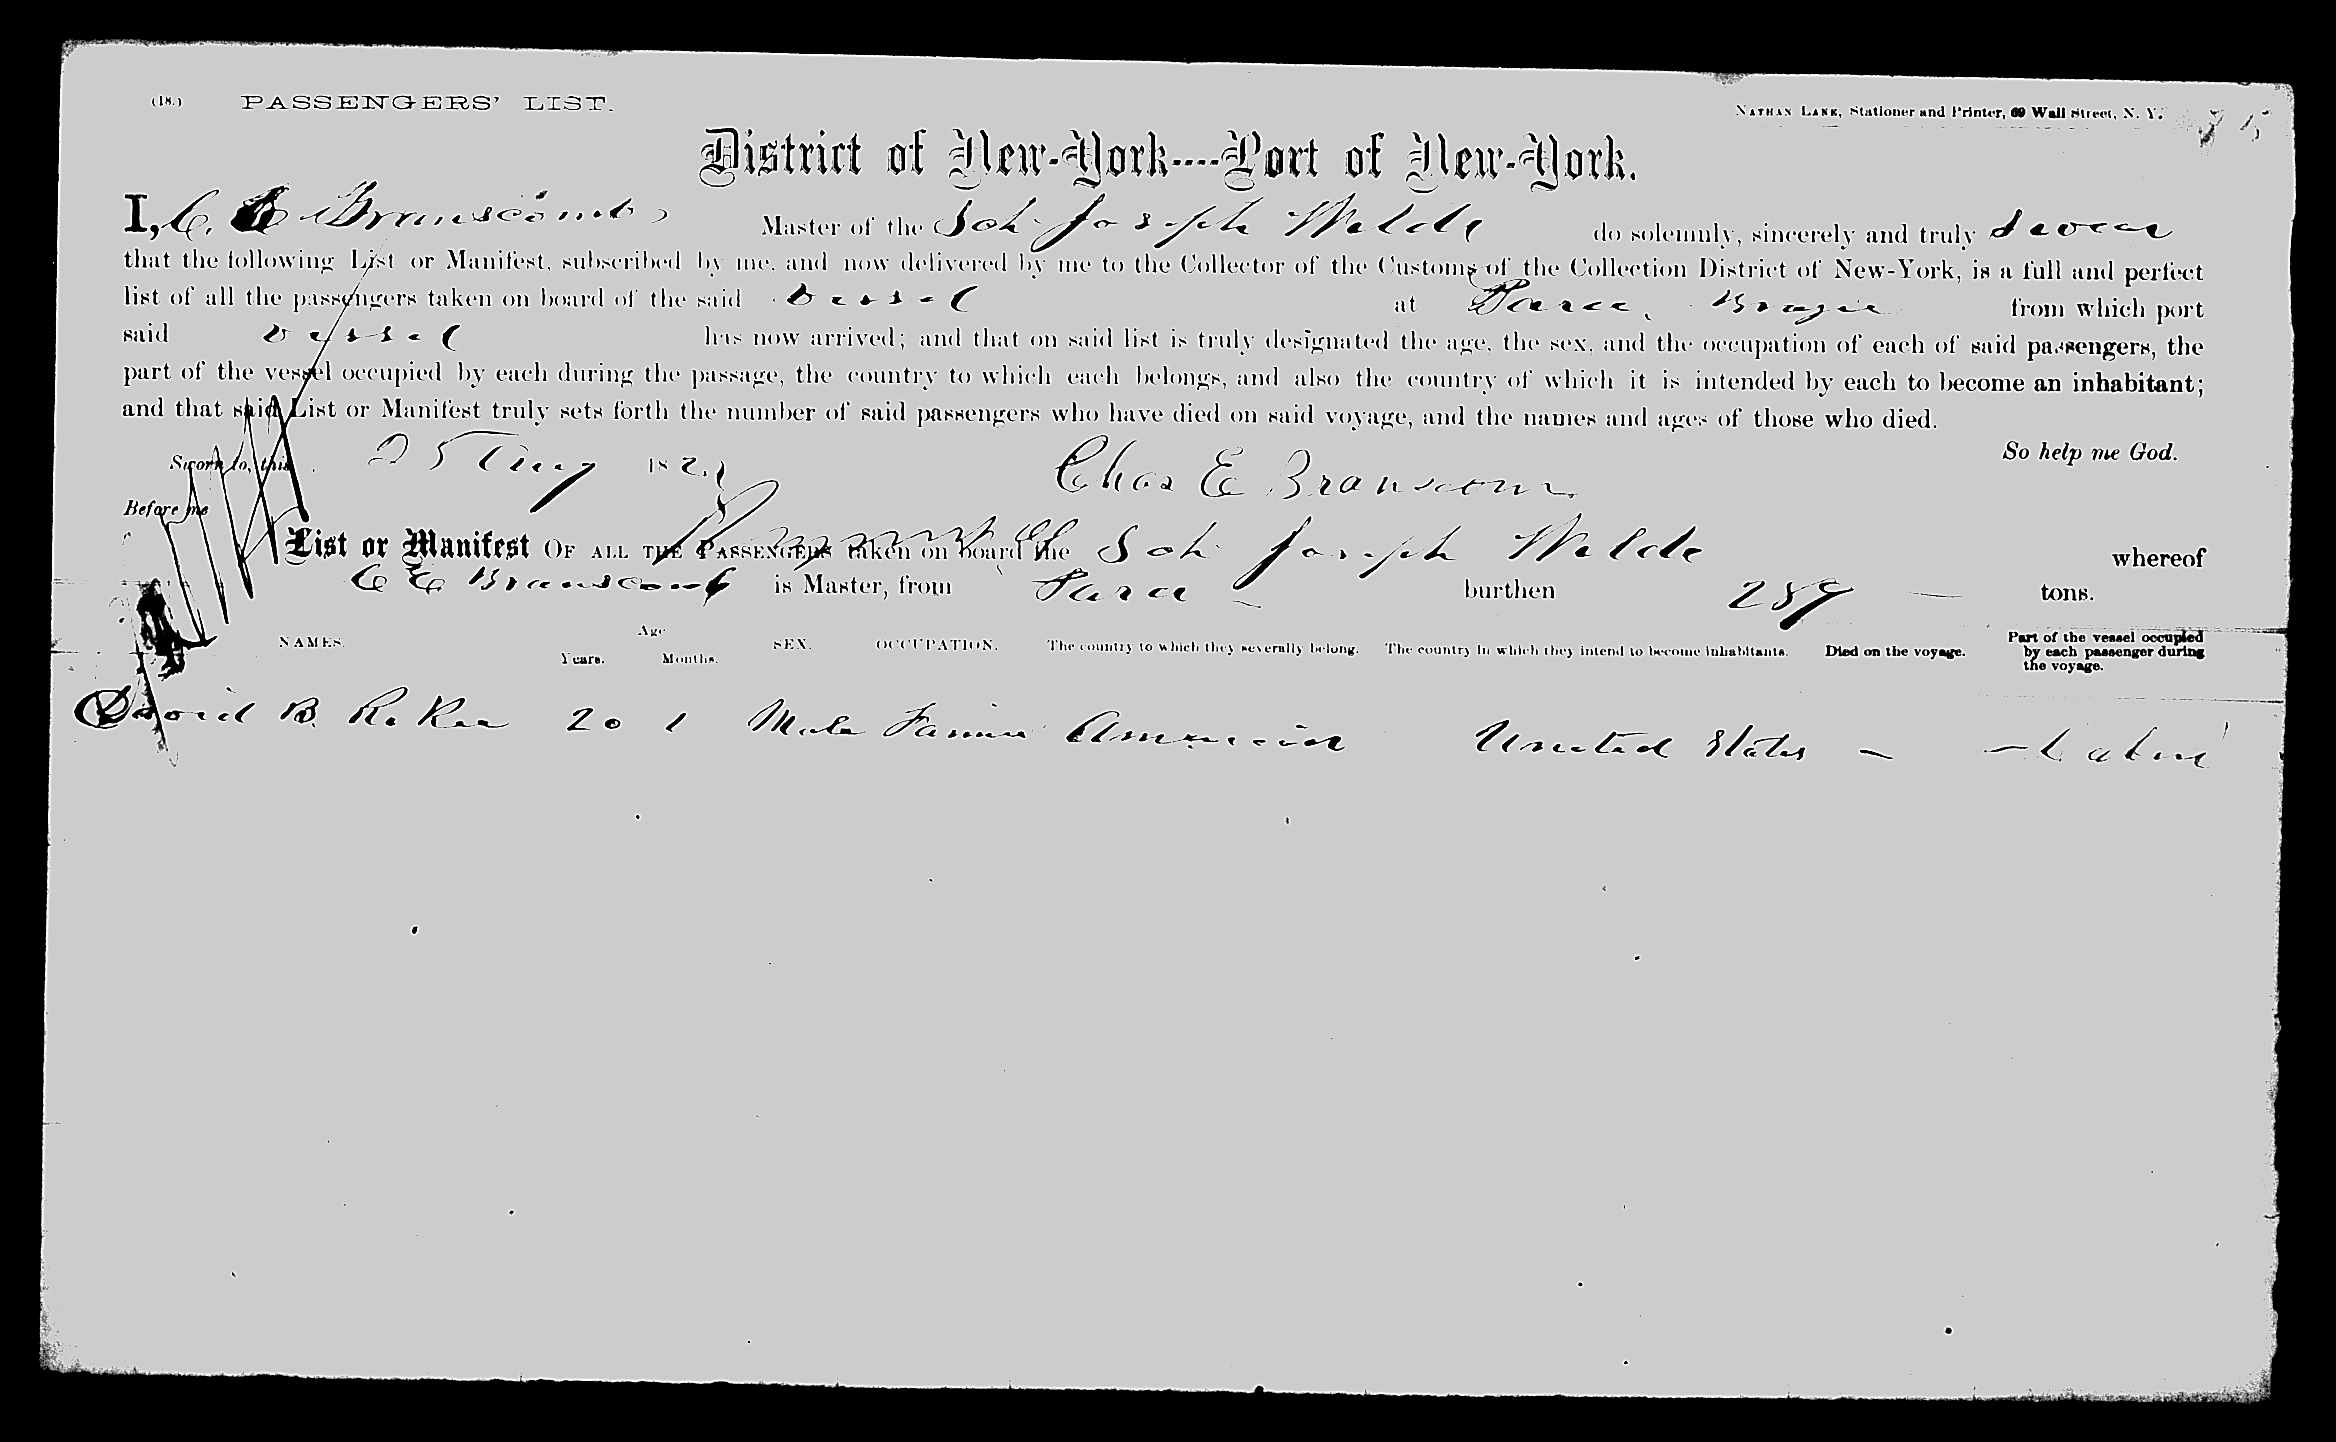 (18.) PASSENGERS' LIST. NATHAN LANE, Stationer and Printer, 69 Wall Street, N. Y.
District of New-York----Port of New-York.
I, C. E Branscomb Master of the Sch Joseph Wilde do solemnly, sincerely and truly swear
that the following List or Manifest, subscribed by me, and now delivered by me to the Collector of the Customs of the Collection District of New-York, is a full and perfect
list of all the passengers taken on board of the said vessel at Para, from which port
said vessel has now arrived; and that on said list is truly designated the age, the sex, and the occupation of each of said passengers, the
part of the vessel occupied by each during the passage, the country to which each belongs, and also the country of which it is intended by each to become an inhabitant;
and that said List or Manifest truly sets forth the number of said passengers who have died on said voyage, and the names and ages of those who died.
So help me God.
Sworn to, this 25 Aug 18 Chas E Branscom
Before me
List or Manifest OF ALL THE PASSENGERS taken on board the Sch Joseph Wilde whereof
C E Branscomb is Master, from Para burthen 289 tons.
NAMES. Age Years. Months. SEX. OCCUPATION. The country to which they severally belong. The country in which they intend to become inhabitants. Died on the voyage. Part of the vessel occupied by each passenger during the voyage.
David B. 20 1 Male American United States - Cabin